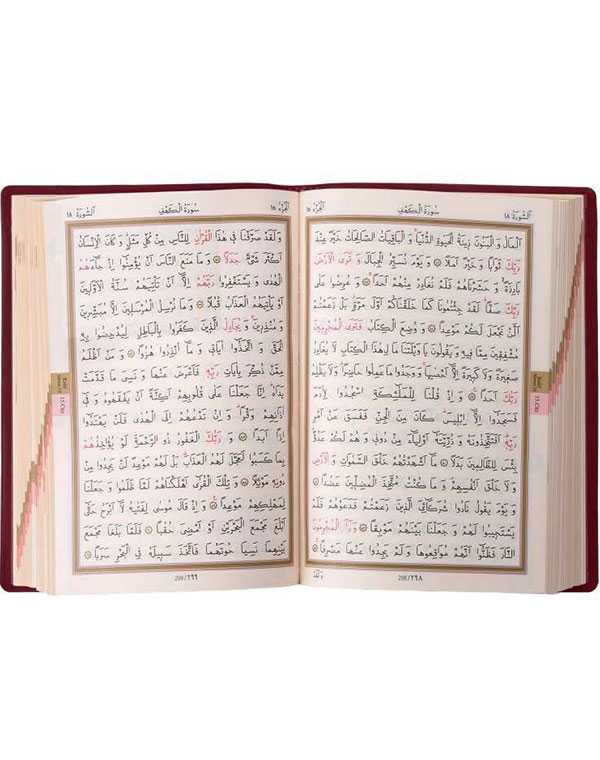 اَلسُّورَةُ ١٨ سُورَةُ الْكَهْفِ اَلْجُزْءُ ١٥
اَلْمَالُ وَالْبَنُونَ زِينَةُ الْحَيٰوةِ الدُّنْيَا وَالْبَاقِيَاتُ الصَّالِحَاتُ خَيْرٌ عِنْدَ
رَبِّكَ ثَوَابًا وَخَيْرٌ اَمَلًا وَيَوْمَ نُسَيِّرُ الْجِبَالَ وَتَرَى الْاَرْضَ
بَارِزَةً وَحَشَرْنَاهُمْ فَلَمْ نُغَادِرْ مِنْهُمْ اَحَدًا وَعُرِضُوا عَلٰى
رَبِّكَ صَفًّا لَقَدْ جِئْتُمُونَا كَمَا خَلَقْنَاكُمْ اَوَّلَ مَرَّةٍ بَلْ زَعَمْتُمْ
اَلَّنْ نَجْعَلَ لَكُمْ مَوْعِدًا وَوُضِعَ الْكِتَابُ فَتَرَى الْمُجْرِمِينَ
مُشْفِقِينَ مِمَّا فِيهِ وَيَقُولُونَ يَا وَيْلَتَنَا مَالِ هٰذَا الْكِتَابِ لَا يُغَادِرُ
صَغِيرَةً وَلَا كَبِيرَةً اِلَّا اَحْصٰيهَا وَوَجَدُوا مَا عَمِلُوا حَاضِرًا وَلَا يَظْلِمُ
رَبُّكَ اَحَدًا وَاِذْ قُلْنَا لِلْمَلٰئِكَةِ اسْجُدُوا لِاٰدَمَ
فَسَجَدُوا اِلَّا اِبْلِيسَ كَانَ مِنَ الْجِنِّ فَفَسَقَ عَنْ اَمْرِ
رَبِّهِ اَفَتَتَّخِذُونَهُ وَذُرِّيَّتَهُ اَوْلِيَاءَ مِنْ دُونِى وَهُمْ لَكُمْ عَدُوٌّ
بِئْسَ لِلظَّالِمِينَ بَدَلًا مَا اَشْهَدْتُهُمْ خَلْقَ السَّمٰوَاتِ وَالْاَرْضِ
وَلَا خَلْقَ اَنْفُسِهِمْ وَمَا كُنْتُ مُتَّخِذَ الْمُضِلِّينَ عَضُدًا
وَيَوْمَ يَقُولُ نَادُوا شُرَكَاءِىَ الَّذِينَ زَعَمْتُمْ فَدَعَوْهُمْ فَلَمْ
يَسْتَجِيبُوا لَهُمْ وَجَعَلْنَا بَيْنَهُمْ مَوْبِقًا وَرَاَ الْمُجْرِمُونَ
النَّارَ فَظَنُّوا اَنَّهُمْ مُوَاقِعُوهَا وَلَمْ يَجِدُوا عَنْهَا مَصْرِفًا
وَلَقَدْ
اَلسُّورَةُ ١٨ سُورَةُ الْكَهْفِ اَلْجُزْءُ ١٥
وَلَقَدْ صَرَّفْنَا فِى هٰذَا الْقُرْاٰنِ لِلنَّاسِ مِنْ كُلِّ مَثَلٍ وَكَانَ الْاِنْسَانُ
اَكْثَرَ شَىْءٍ جَدَلًا وَمَا مَنَعَ النَّاسَ اَنْ يُؤْمِنُوا اِذْ جَاءَهُمُ
الْهُدٰى وَيَسْتَغْفِرُوا رَبَّهُمْ اِلَّا اَنْ تَأْتِيَهُمْ سُنَّةُ الْاَوَّلِينَ
اَوْ يَأْتِيَهُمُ الْعَذَابُ قُبُلًا وَمَا نُرْسِلُ الْمُرْسَلِينَ اِلَّا مُبَشِّرِينَ
وَمُنْذِرِينَ وَيُجَادِلُ الَّذِينَ كَفَرُوا بِالْبَاطِلِ لِيُدْحِضُوا بِهِ
الْحَقَّ وَاتَّخَذُوا اٰيَاتِى وَمَا اُنْذِرُوا هُزُوًا وَمَنْ اَظْلَمُ
مِمَّنْ ذُكِّرَ بِاٰيَاتِ رَبِّهِ فَاَعْرَضَ عَنْهَا وَنَسِىَ مَا قَدَّمَتْ
يَدَاهُ اِنَّا جَعَلْنَا عَلٰى قُلُوبِهِمْ اَكِنَّةً اَنْ يَفْقَهُوهُ وَفِى
اٰذَانِهِمْ وَقْرًا وَاِنْ تَدْعُهُمْ اِلَى الْهُدٰى فَلَنْ يَهْتَدُوا
اِذًا اَبَدًا وَرَبُّكَ الْغَفُورُ ذُو الرَّحْمَةِ لَوْ يُؤَاخِذُهُمْ
بِمَا كَسَبُوا لَعَجَّلَ لَهُمُ الْعَذَابَ بَلْ لَهُمْ مَوْعِدٌ لَنْ يَجِدُوا مِنْ
دُونِهِ مَوْئِلًا وَتِلْكَ الْقُرٰى اَهْلَكْنَاهُمْ لَمَّا ظَلَمُوا وَجَعَلْنَا
لِمَهْلِكِهِمْ مَوْعِدًا وَاِذْ قَالَ مُوسٰى لِفَتٰيهُ لَا اَبْرَحُ حَتّٰى
اَبْلُغَ مَجْمَعَ الْبَحْرَيْنِ اَوْ اَمْضِىَ حُقُبًا فَلَمَّا بَلَغَا مَجْمَعَ
بَيْنِهِمَا نَسِيَا حُوتَهُمَا فَاتَّخَذَ سَبِيلَهُ فِى الْبَحْرِ سَرَبًا